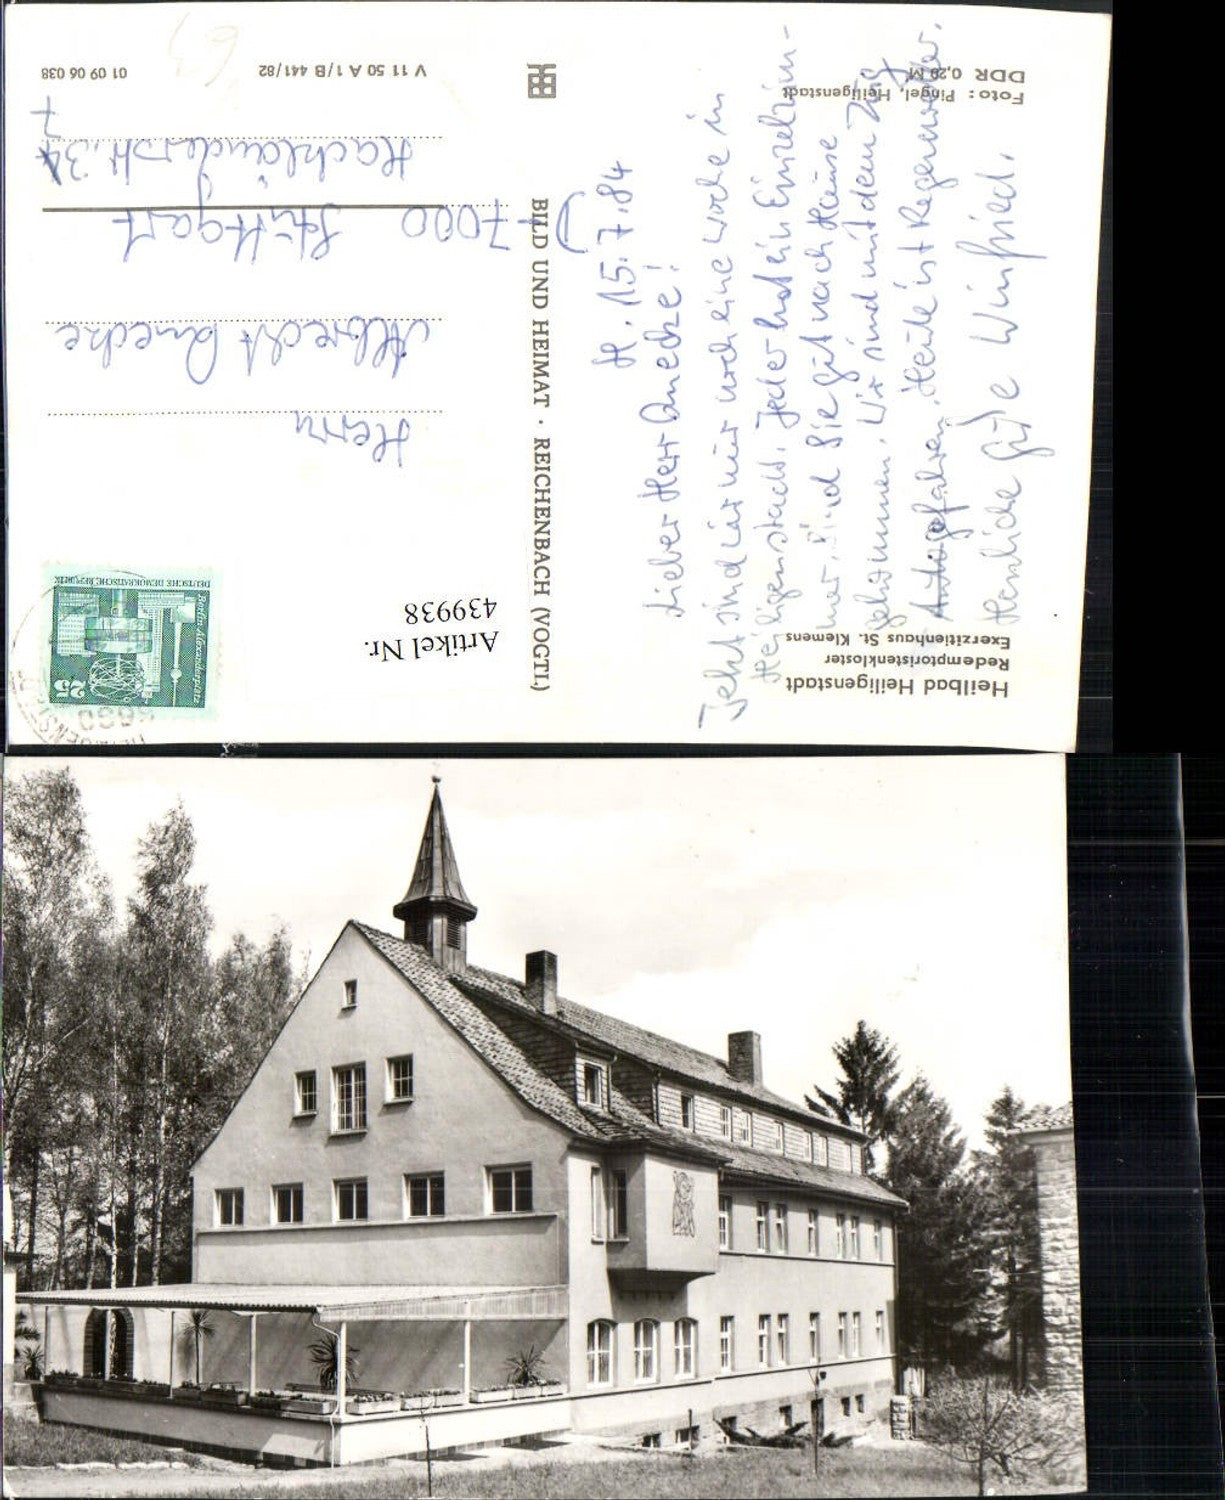 Heilbad Heiligenstadt
Redemptoristenkloster
Exerzitienhaus St. Klemens
H. 15.7.84
Lieber Herr Quecke!
Jetzt sind wir nur noch eine Woche in
Heiligenstadt. Jeder hat ein Einzelzim-
mer. Sind Sie gut nach Hause
gekommen. Wir sind mit dem Zug
Autogefahren. Heute ist Regenwetter.
Herzliche Grüße Winfried.
Foto: Pingel, Heiligenstadt
DDR 0,20 M
BILD UND HEIMAT · REICHENBACH (VOGTL)
Artikel Nr.
439938
25
Berlin-Alexanderplatz
DEUTSCHE DEMOKRATISCHE REPUBLIK
Herrn
Albrecht Quecke
D-7000 Stuttgart
Hackländerstr. 34
7
V 11 50 A 1/B 441/82
01 09 06 038